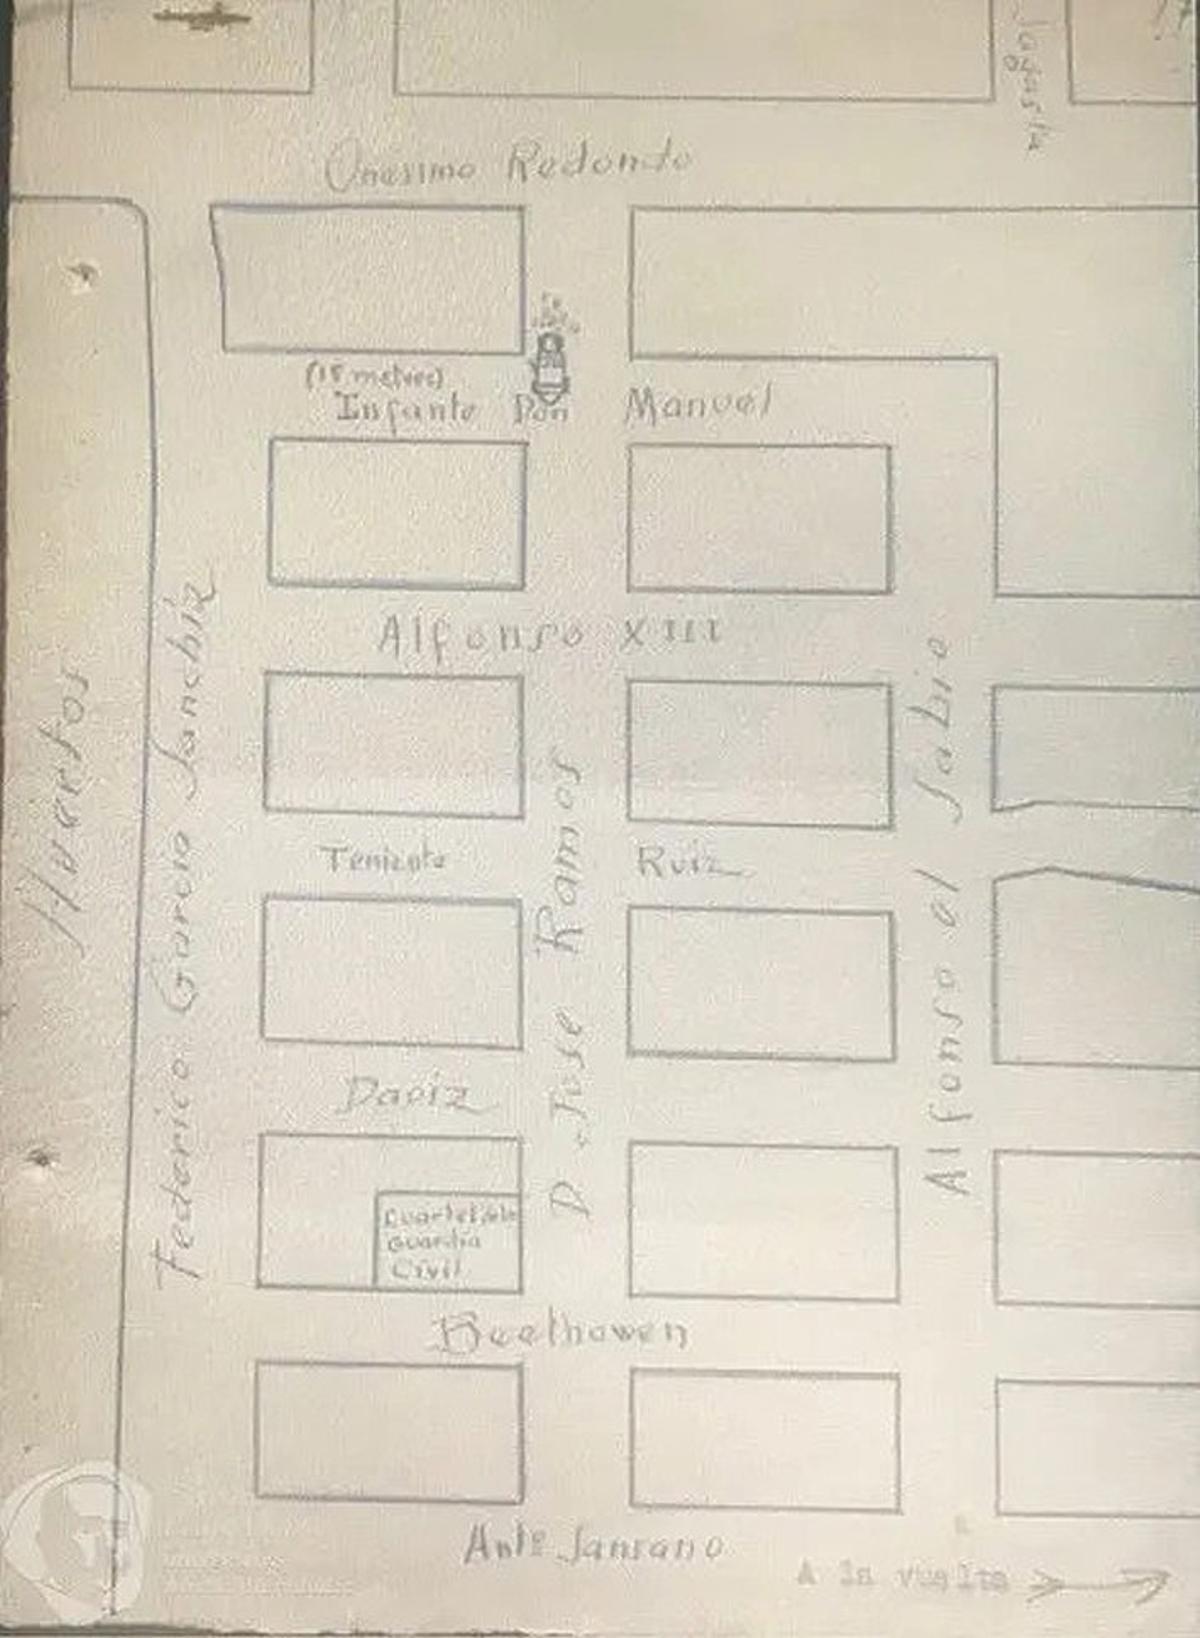 Onesimo Redondo
(15 metros)
Infante Don Manuel
Alfonso XIII
Huertos
Federico Garcia Sanchiz
D. Jose Ramos
Alfonso el Sabio
Teniente Ruiz
Daoiz
Cuartel de la
Guardia
Civil
Beethowen
Antº Sansano
A la vuelta